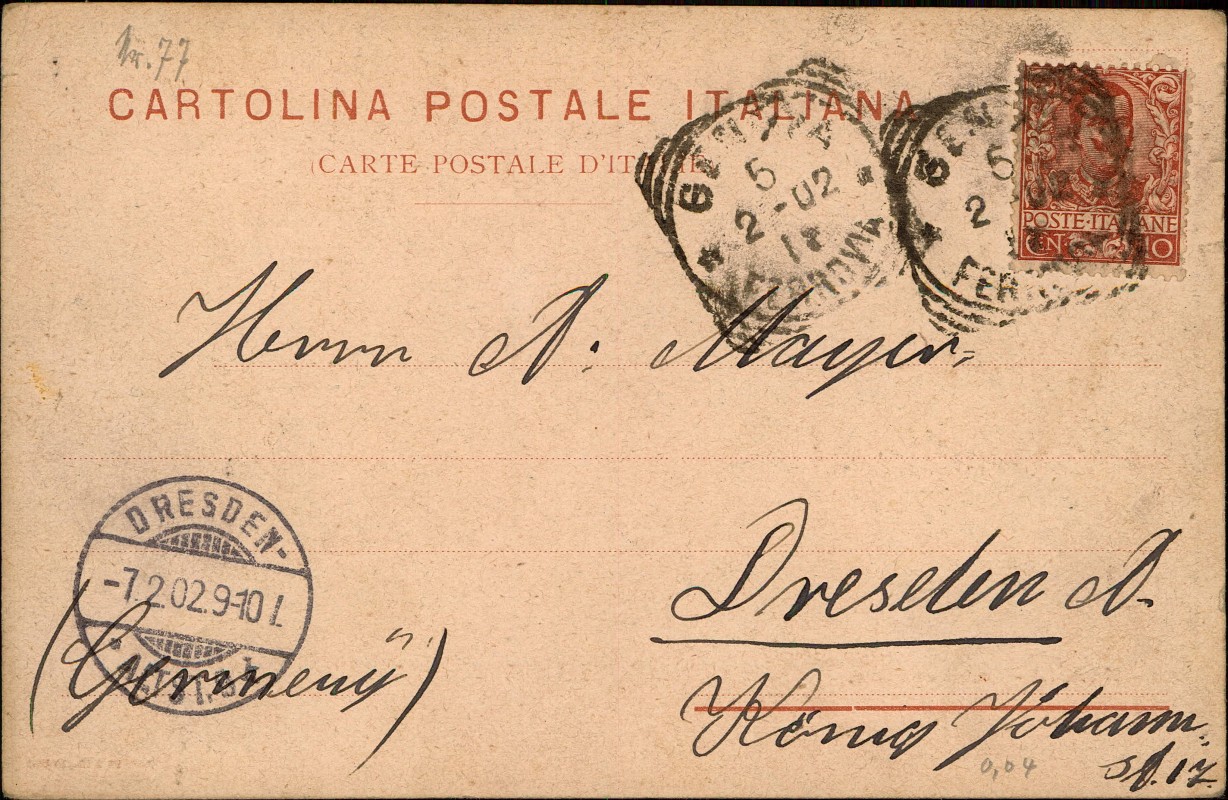 Nr. 77
CARTOLINA POSTALE ITALIANA
(CARTE POSTALE D'IT
GENOVA
5
2 -02
18
FERROVIA
GEN
5
2 -02
FER
POSTE·ITALIANE
CEN 10
Herrn A. Mayer
DRESDEN-
-7.2.02.9-10 V.
ALTST.
Dresden A.
(Germany)
König Johann-
St. 17
0,04